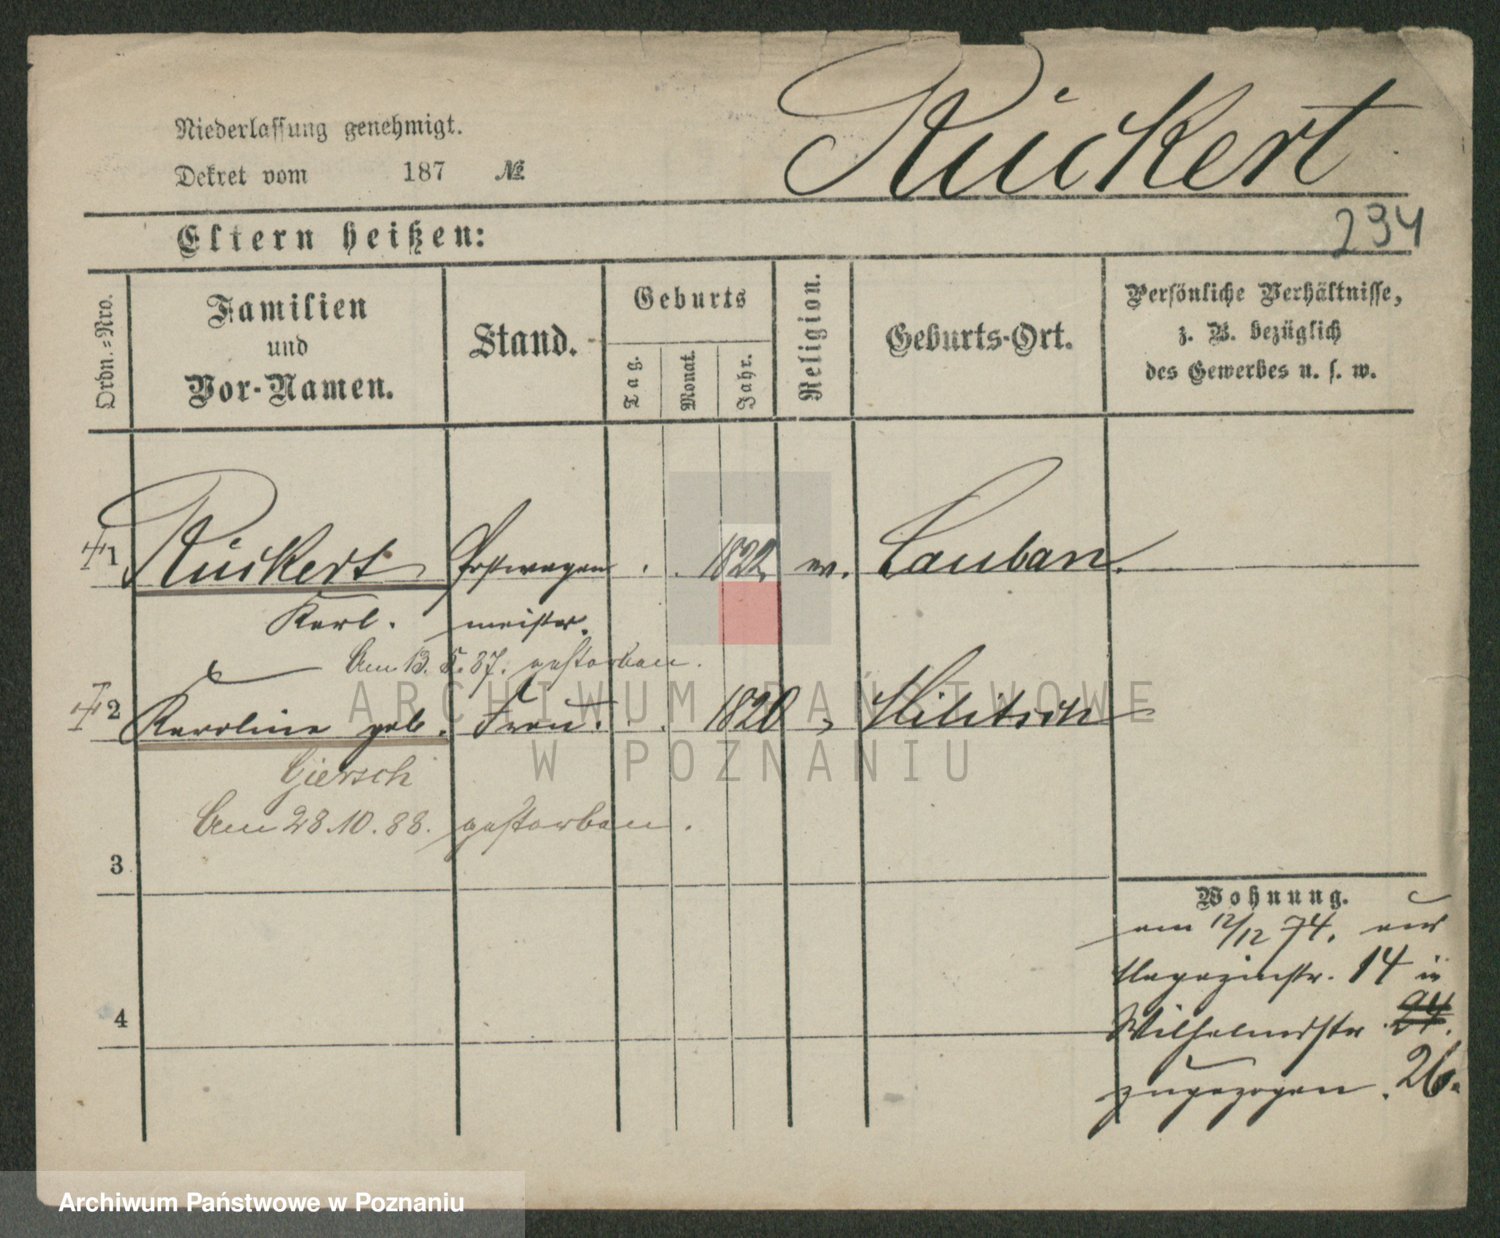 Rückert
Niederlassung genehmigt.
Dekret vom 187 №
294
Eltern heißen:
Ordn.=Nro.
Familien
und
Vor-Namen.
Stand.
Geburts
Tag.
Monat.
Jahr.
Religion.
Geburts-Ort.
Persönliche Verhältnisse,
z. B. bezüglich
des Gewerbes u. s. w.
1 Rückert Postwagen 1822 ev. Lauban.
Karl. meister.
Am 13. 5. 87. gestorben.
2 Karoline geb. Frau. 1820 Militsch
Giersch
Am 28.10.88. gestorben.
3
4
Wohnung.
am 12/12 74. aus
Magazinstr. 14 in
Wilhelmstr. 24.
zugezogen. 26.
ARCHIWUM PAŃSTWOWE
W POZNANIU
Archiwum Państwowe w Poznaniu